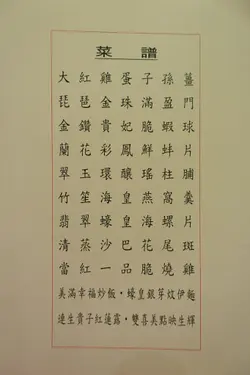 菜譜
大紅雞蛋子孫薑
琵琶金珠滿盈門
金鑽貴妃脆蝦球
蘭花彩鳳鮮蚌片
翠玉環釀瑤柱脯
竹笙海皇燕窩羹
翡翠蠔皇海螺片
清蒸沙巴花尾斑
當紅一品脆燒雞
美滿幸福炒飯・蠔皇銀芽炆伊麵
連生貴子紅蓮露・雙喜美點映生輝